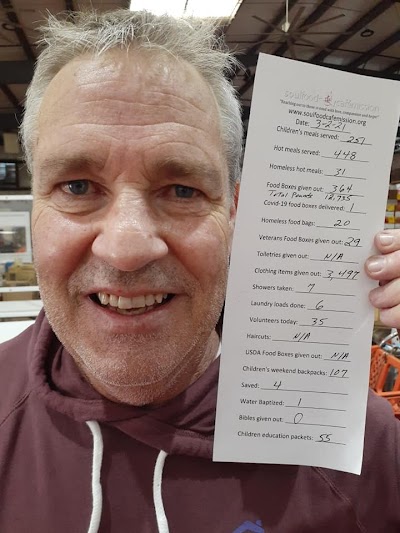 soulfood cafemission
"Reaching out to the world with love, compassion and hope!"
www.soulfoodcafemission.org
Date: 3-2-21
Children's meals served: 251
Hot meals served: 448
Homeless hot meals: 31
Food Boxes given out: 364
Total Pounds 12,735
Covid-19 food boxes delivered: 1
Homeless food bags: 20
Veterans Food Boxes given out: 29
Toiletries given out: N/A
Clothing items given out: 3,497
Showers taken: 7
Laundry loads done: 6
Volunteers today: 35
Haircuts: N/A
USDA Food Boxes given out: N/A
Children's weekend backpacks: 107
Saved: 4
Water Baptized: 1
Bibles given out: 0
Children education packets: 55